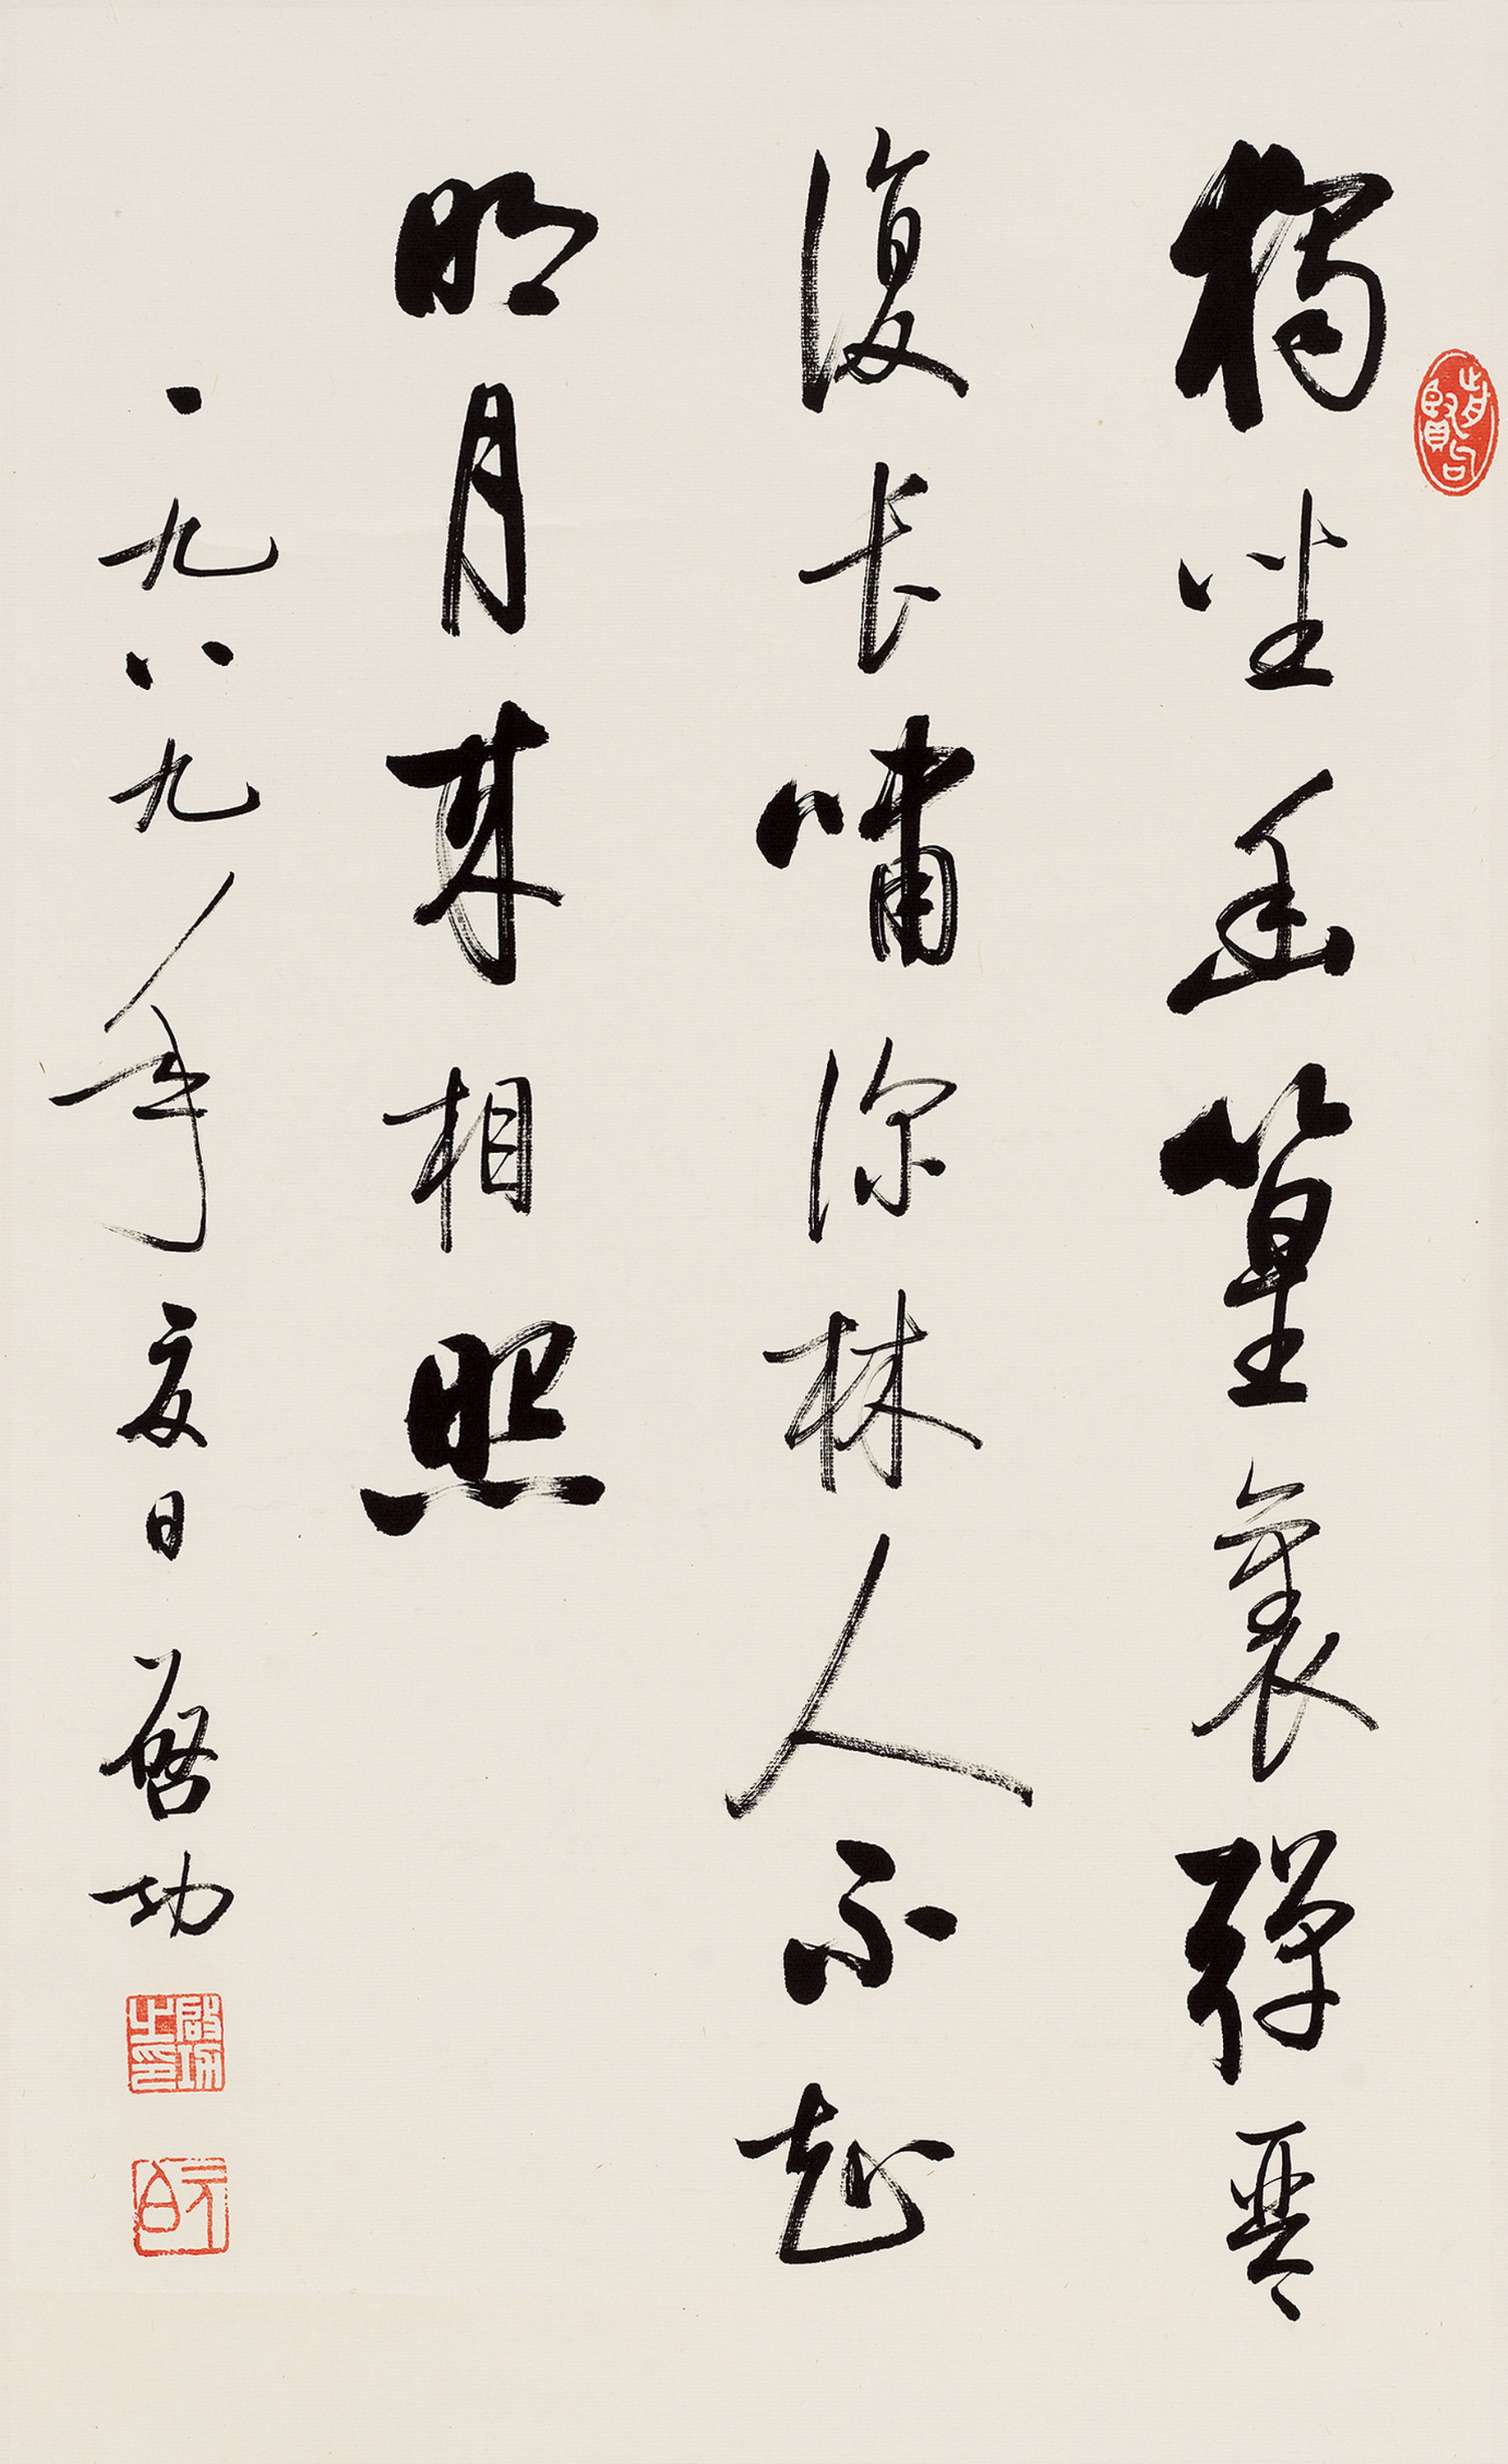 前賢句
獨坐幽篁裏彈琴
復長嘯深林人不知
明月來相照
一九八九年夏日 啓功
啟功之印
元白